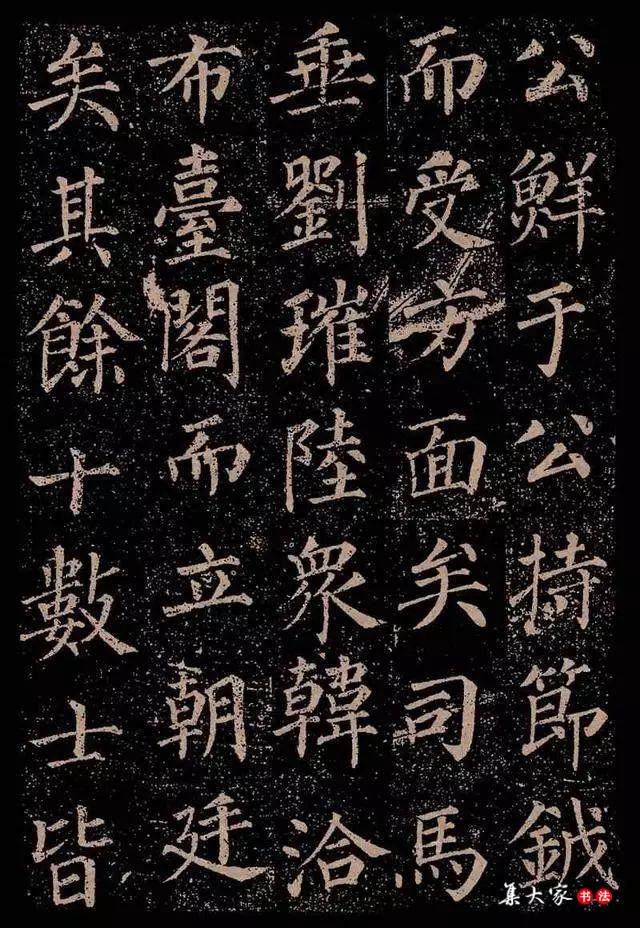 公鮮于公持節鉞
而受方面矣司馬
垂劉璀陸衆韓洽
布臺閣而立朝廷
矣其餘十數士皆
集大家书法